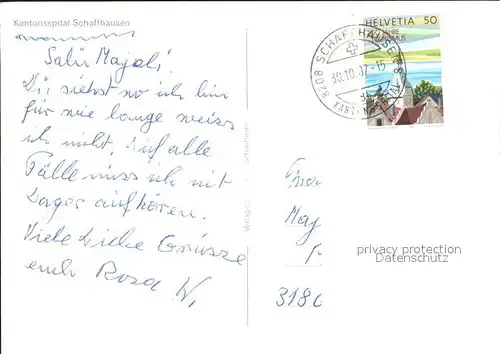 Kantonsspital Schaffhausen
Salü Majeli
Du siehst wo ich bin
für wie lange weiss
ich nicht, Auf alle
Fälle muss ich mit
Lager aufhören.
Viele Liebe Grüsse
euch Rosa W,
HELVETIA 50
8208 SCHAFFHAUSEN 8
30.10.87-15
Frau
Maj
3186
privacy protection
Datenschutz